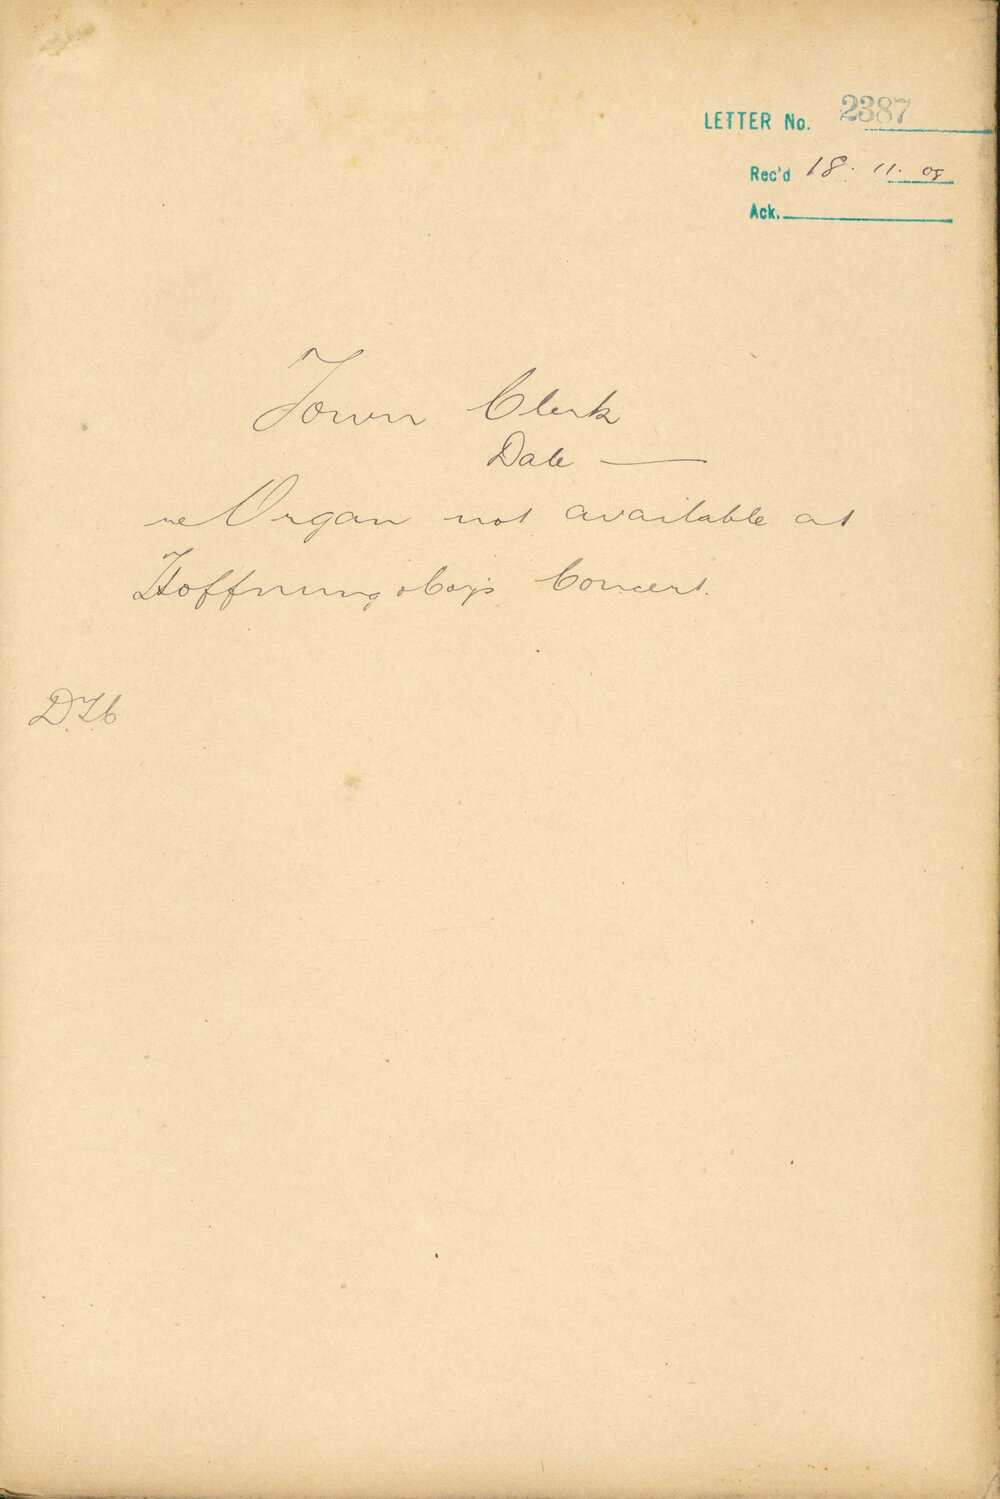 LETTER No. 2387
Rec'd 18. 11. 08
Ack.
Town Clerk
Date —
re Organ not available at
Hoffnung &amp; Coy's Concert.